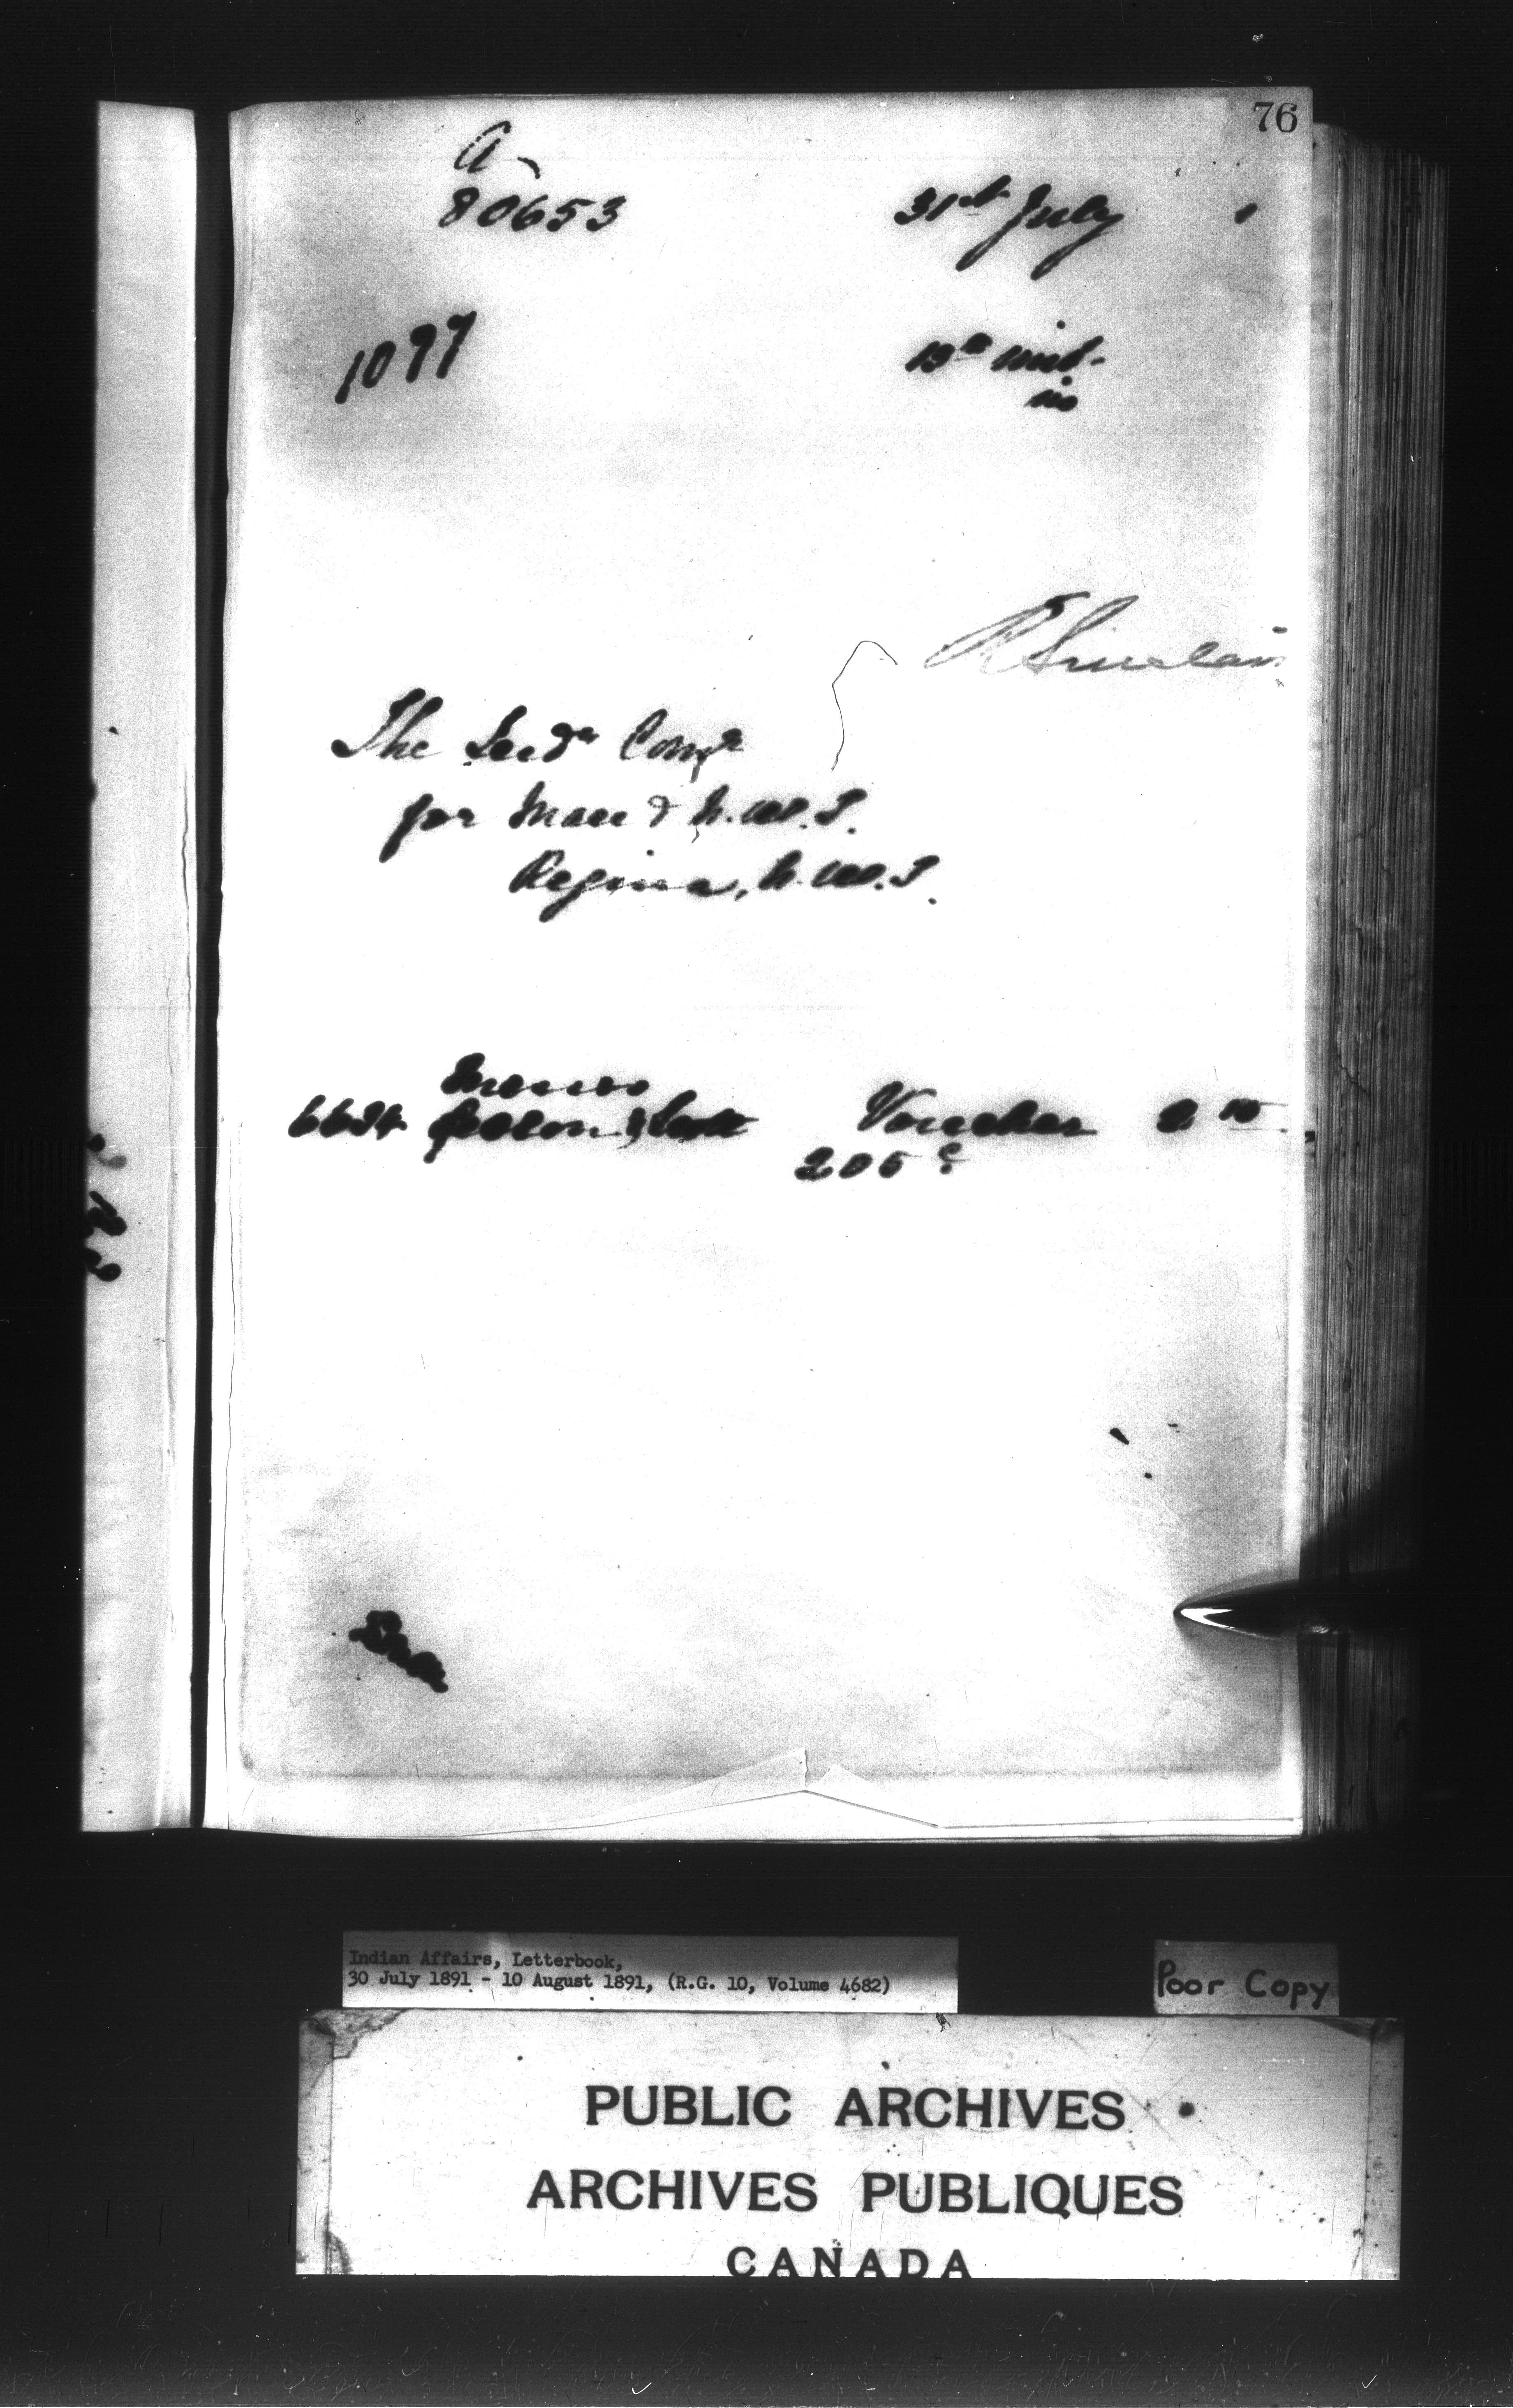 76
A
80653 31st July 1
1077
R Sinclair
The Indn Comr
for Man & N.W.T.
Regina, N.W.T.
Voucher 2 10
205
Indian Affairs, Letterbook,
30 July 1891 - 10 August 1891, (R.G. 10, Volume 4682)
Poor Copy
PUBLIC ARCHIVES
ARCHIVES PUBLIQUES
CANADA